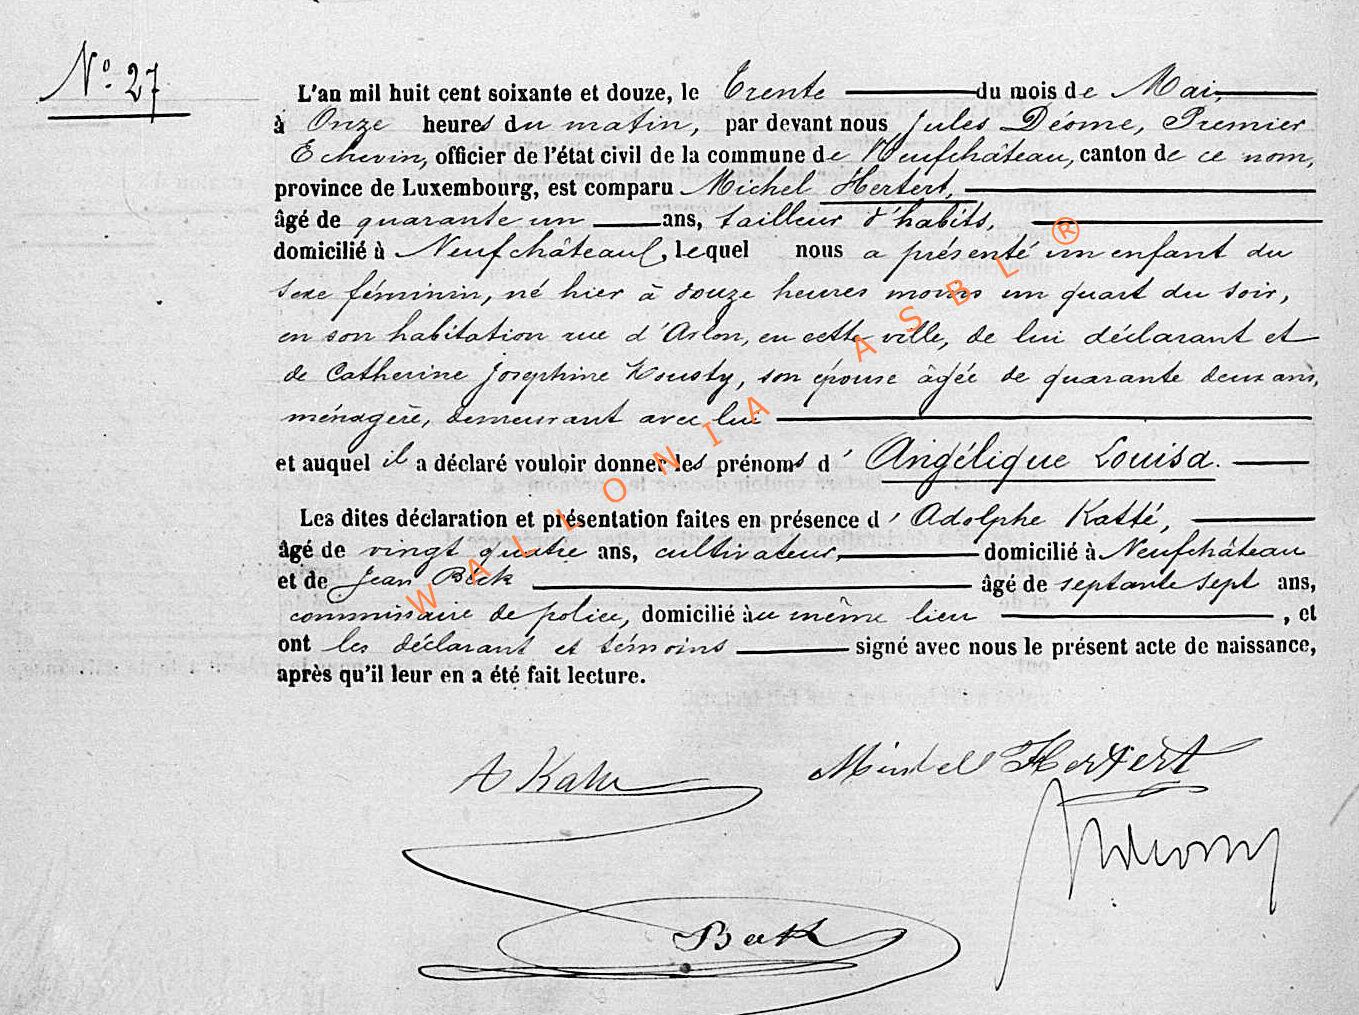 N° 27
L'an mil huit cent soixante et douze, le Trente du mois de Mai,
à Onze heures du matin, par devant nous Jules Déome, Premier
Echevin, officier de l'état civil de la commune de Neufchâteau, canton de ce nom,
province de Luxembourg, est comparu Michel Hertert,
âgé de quarante un ans, tailleur d'habits,
domicilié à Neufchâteau, lequel nous a présenté un enfant du
sexe féminin, né hier à douze heures moins un quart du soir,
en son habitation rue d'Arlon, en cette ville, de lui déclarant et
de Catherine Josephine Kousty, son épouse âgée de quarante deux ans,
ménagère, demeurant avec lui
et auquel il a déclaré vouloir donner les prénoms d' Angélique Louisa.
Les dites déclaration et présentation faites en présence d' Adolphe Katté,
âgé de vingt quatre ans, cultivateur, domicilié à Neufchâteau
et de Jean Beck âgé de septante sept ans,
commissaire de police, domicilié au même lieu , et
ont les déclarant et témoins signé avec nous le présent acte de naissance,
après qu'il leur en a été fait lecture.
WALLONIA ASBL ®
A Katte Michel Hertert
Beck